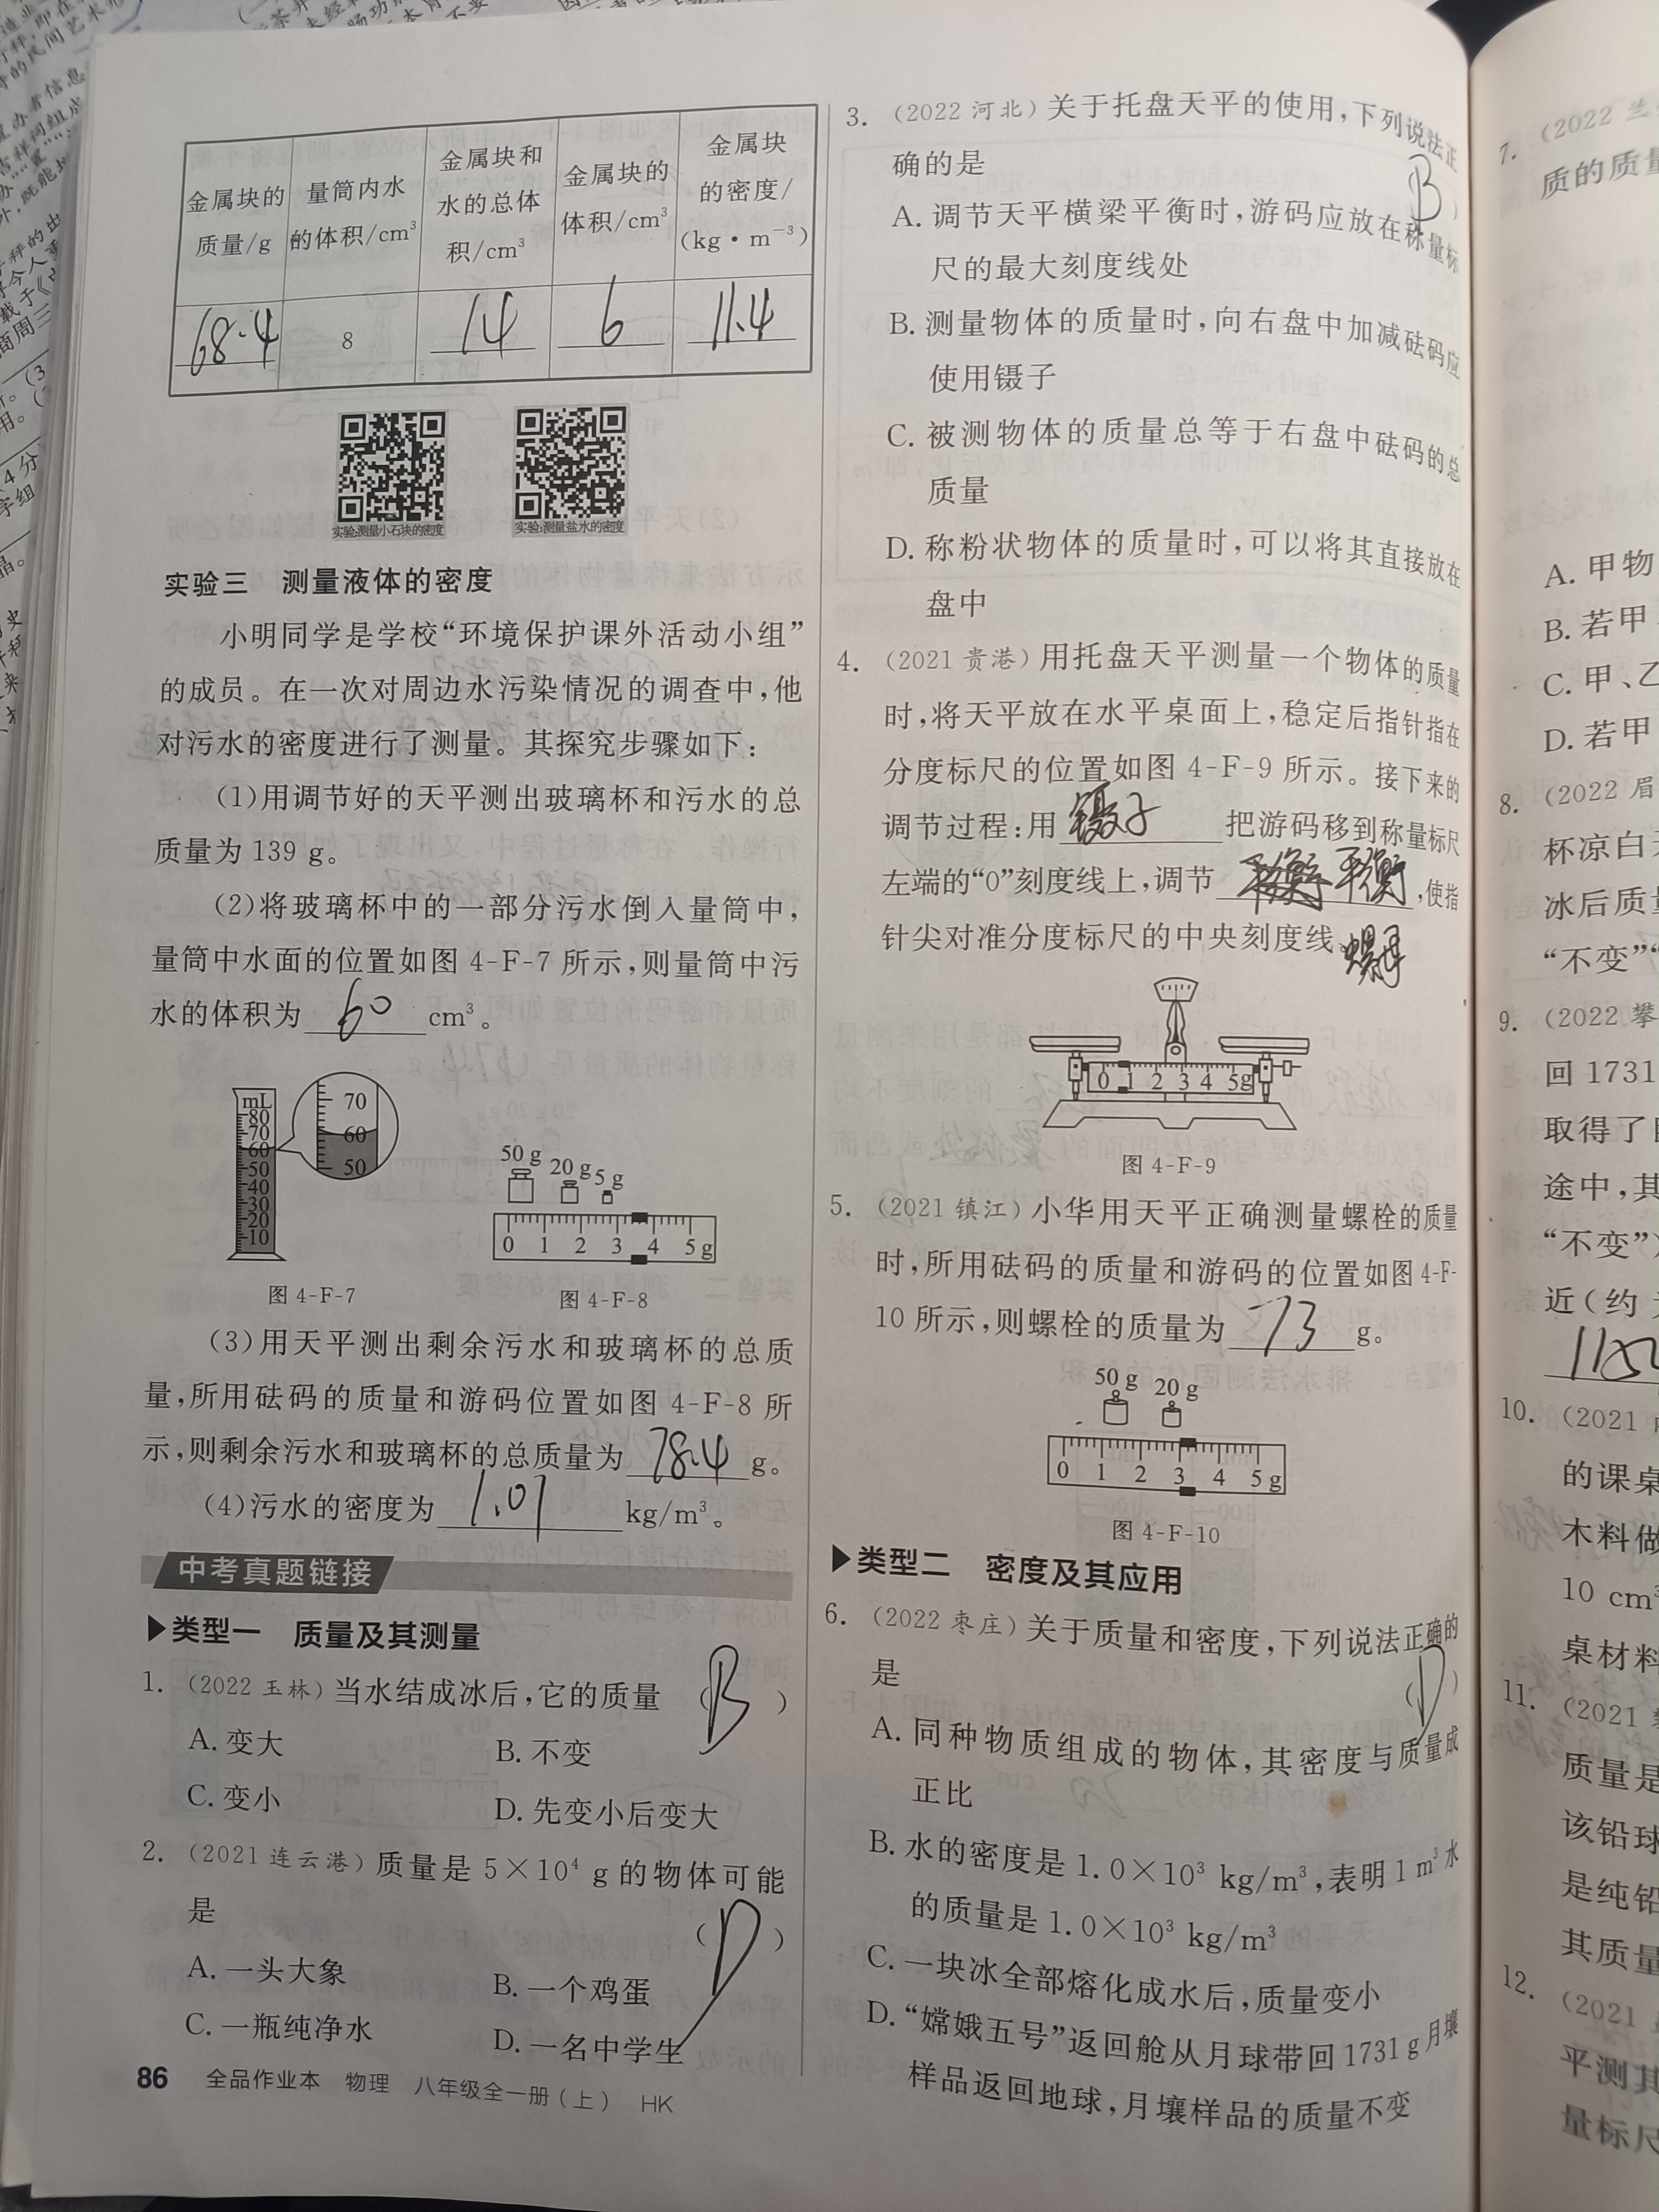 金属块的质量/g
量筒内水的体积/cm³
金属块和水的总体积/cm³
金属块的体积/cm³
金属块的密度/(kg·m⁻³)
68.4 8 14 6 11.4
实验:测量小石块的密度 实验:测量盐水的密度
实验三 测量液体的密度
小明同学是学校“环境保护课外活动小组”
的成员。在一次对周边水污染情况的调查中,他
对污水的密度进行了测量。其探究步骤如下:
(1)用调节好的天平测出玻璃杯和污水的总
质量为 139 g。
(2)将玻璃杯中的一部分污水倒入量筒中,
量筒中水面的位置如图 4-F-7 所示,则量筒中污
水的体积为 60 cm³。
mL
80
70
60
50
40
30
20
10
70
60
50
50 g 20 g 5 g
0 1 2 3 4 5 g
图 4-F-7 图 4-F-8
(3)用天平测出剩余污水和玻璃杯的总质
量,所用砝码的质量和游码位置如图 4-F-8 所
示,则剩余污水和玻璃杯的总质量为 78.4 g。
(4)污水的密度为 1.01 kg/m³。
中考真题链接
▶类型一 质量及其测量
1. (2022 玉林)当水结成冰后,它的质量 (B)
A. 变大 B. 不变
C. 变小 D. 先变小后变大
2. (2021 连云港)质量是 5×10⁴ g 的物体可能
是 (D)
A. 一头大象 B. 一个鸡蛋
C. 一瓶纯净水 D. 一名中学生
86 全品作业本 物理 八年级全一册(上) HK
3. (2022 河北)关于托盘天平的使用,下列说法正
确的是 (B)
A. 调节天平横梁平衡时,游码应放在称量标
尺的最大刻度线处
B. 测量物体的质量时,向右盘中加减砝码应
使用镊子
C. 被测物体的质量总等于右盘中砝码的总
质量
D. 称粉状物体的质量时,可以将其直接放在
盘中
4. (2021 贵港)用托盘天平测量一个物体的质量
时,将天平放在水平桌面上,稳定后指针指在
分度标尺的位置如图 4-F-9 所示。接下来的
调节过程:用 镊子 把游码移到称量标尺
左端的“0”刻度线上,调节 平衡 ,使指
针尖对准分度标尺的中央刻度线。
0 1 2 3 4 5g
图 4-F-9
5. (2021 镇江)小华用天平正确测量螺栓的质量
时,所用砝码的质量和游码的位置如图 4-F-
10 所示,则螺栓的质量为 73 g。
50 g 20 g
0 1 2 3 4 5 g
图 4-F-10
▶类型二 密度及其应用
6. (2022 枣庄)关于质量和密度,下列说法正确的
是 (D)
A. 同种物质组成的物体,其密度与质量成
正比
B. 水的密度是 1.0×10³ kg/m³,表明 1 m³ 水
的质量是 1.0×10³ kg/m³
C. 一块冰全部熔化成水后,质量变小
D. “嫦娥五号”返回舱从月球带回 1731 g 月壤
样品返回地球,月壤样品的质量不变
7. (2022 兰
质的质量
A. 甲物
B. 若甲
C. 甲、乙
D. 若甲
8. (2022 眉
杯凉白
冰后质量
“不变”“
9. (2022 攀
回 1731
取得了
途中,其
“不变”)
近(约
10. (2021
的课桌
木料做
10 cm³
桌材料
11. (2021
质量是
该铅球
是纯铅
其质量
12. (2021
平测其
量标尺